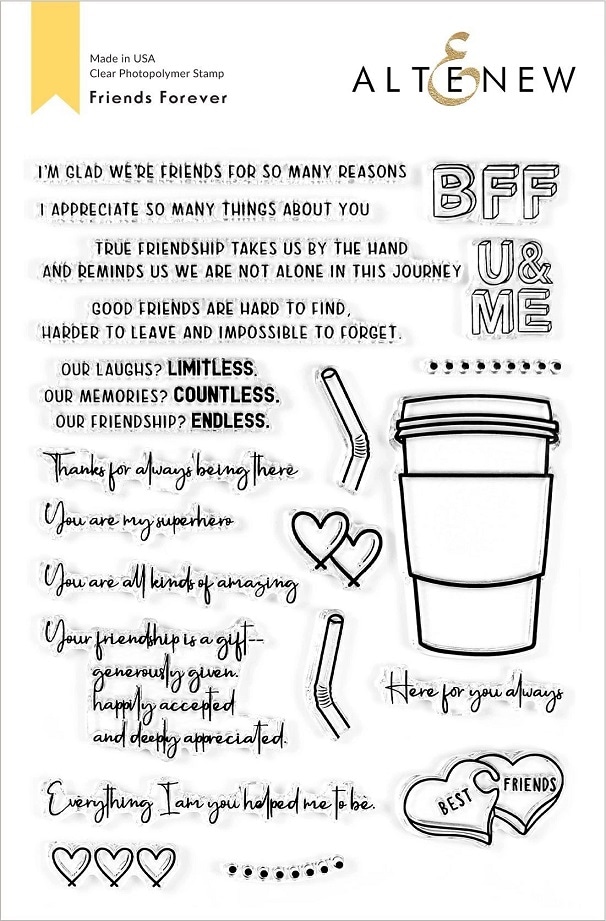 Made in USA
Clear Photopolymer Stamp
Friends Forever
ALTENEW
I'M GLAD WE'RE FRIENDS FOR SO MANY REASONS
BFF
I APPRECIATE SO MANY THINGS ABOUT YOU
TRUE FRIENDSHIP TAKES US BY THE HAND
AND REMINDS US WE ARE NOT ALONE IN THIS JOURNEY
U&
ME
GOOD FRIENDS ARE HARD TO FIND,
HARDER TO LEAVE AND IMPOSSIBLE TO FORGET.
OUR LAUGHS? LIMITLESS.
OUR MEMORIES? COUNTLESS.
OUR FRIENDSHIP? ENDLESS.
Thanks for always being there
You are my superhero
You are all kinds of amazing
Your friendship is a gift--
generously given.
happily accepted
and deeply appreciated.
Here for you always
Everything I am you helped me to be.
BEST FRIENDS